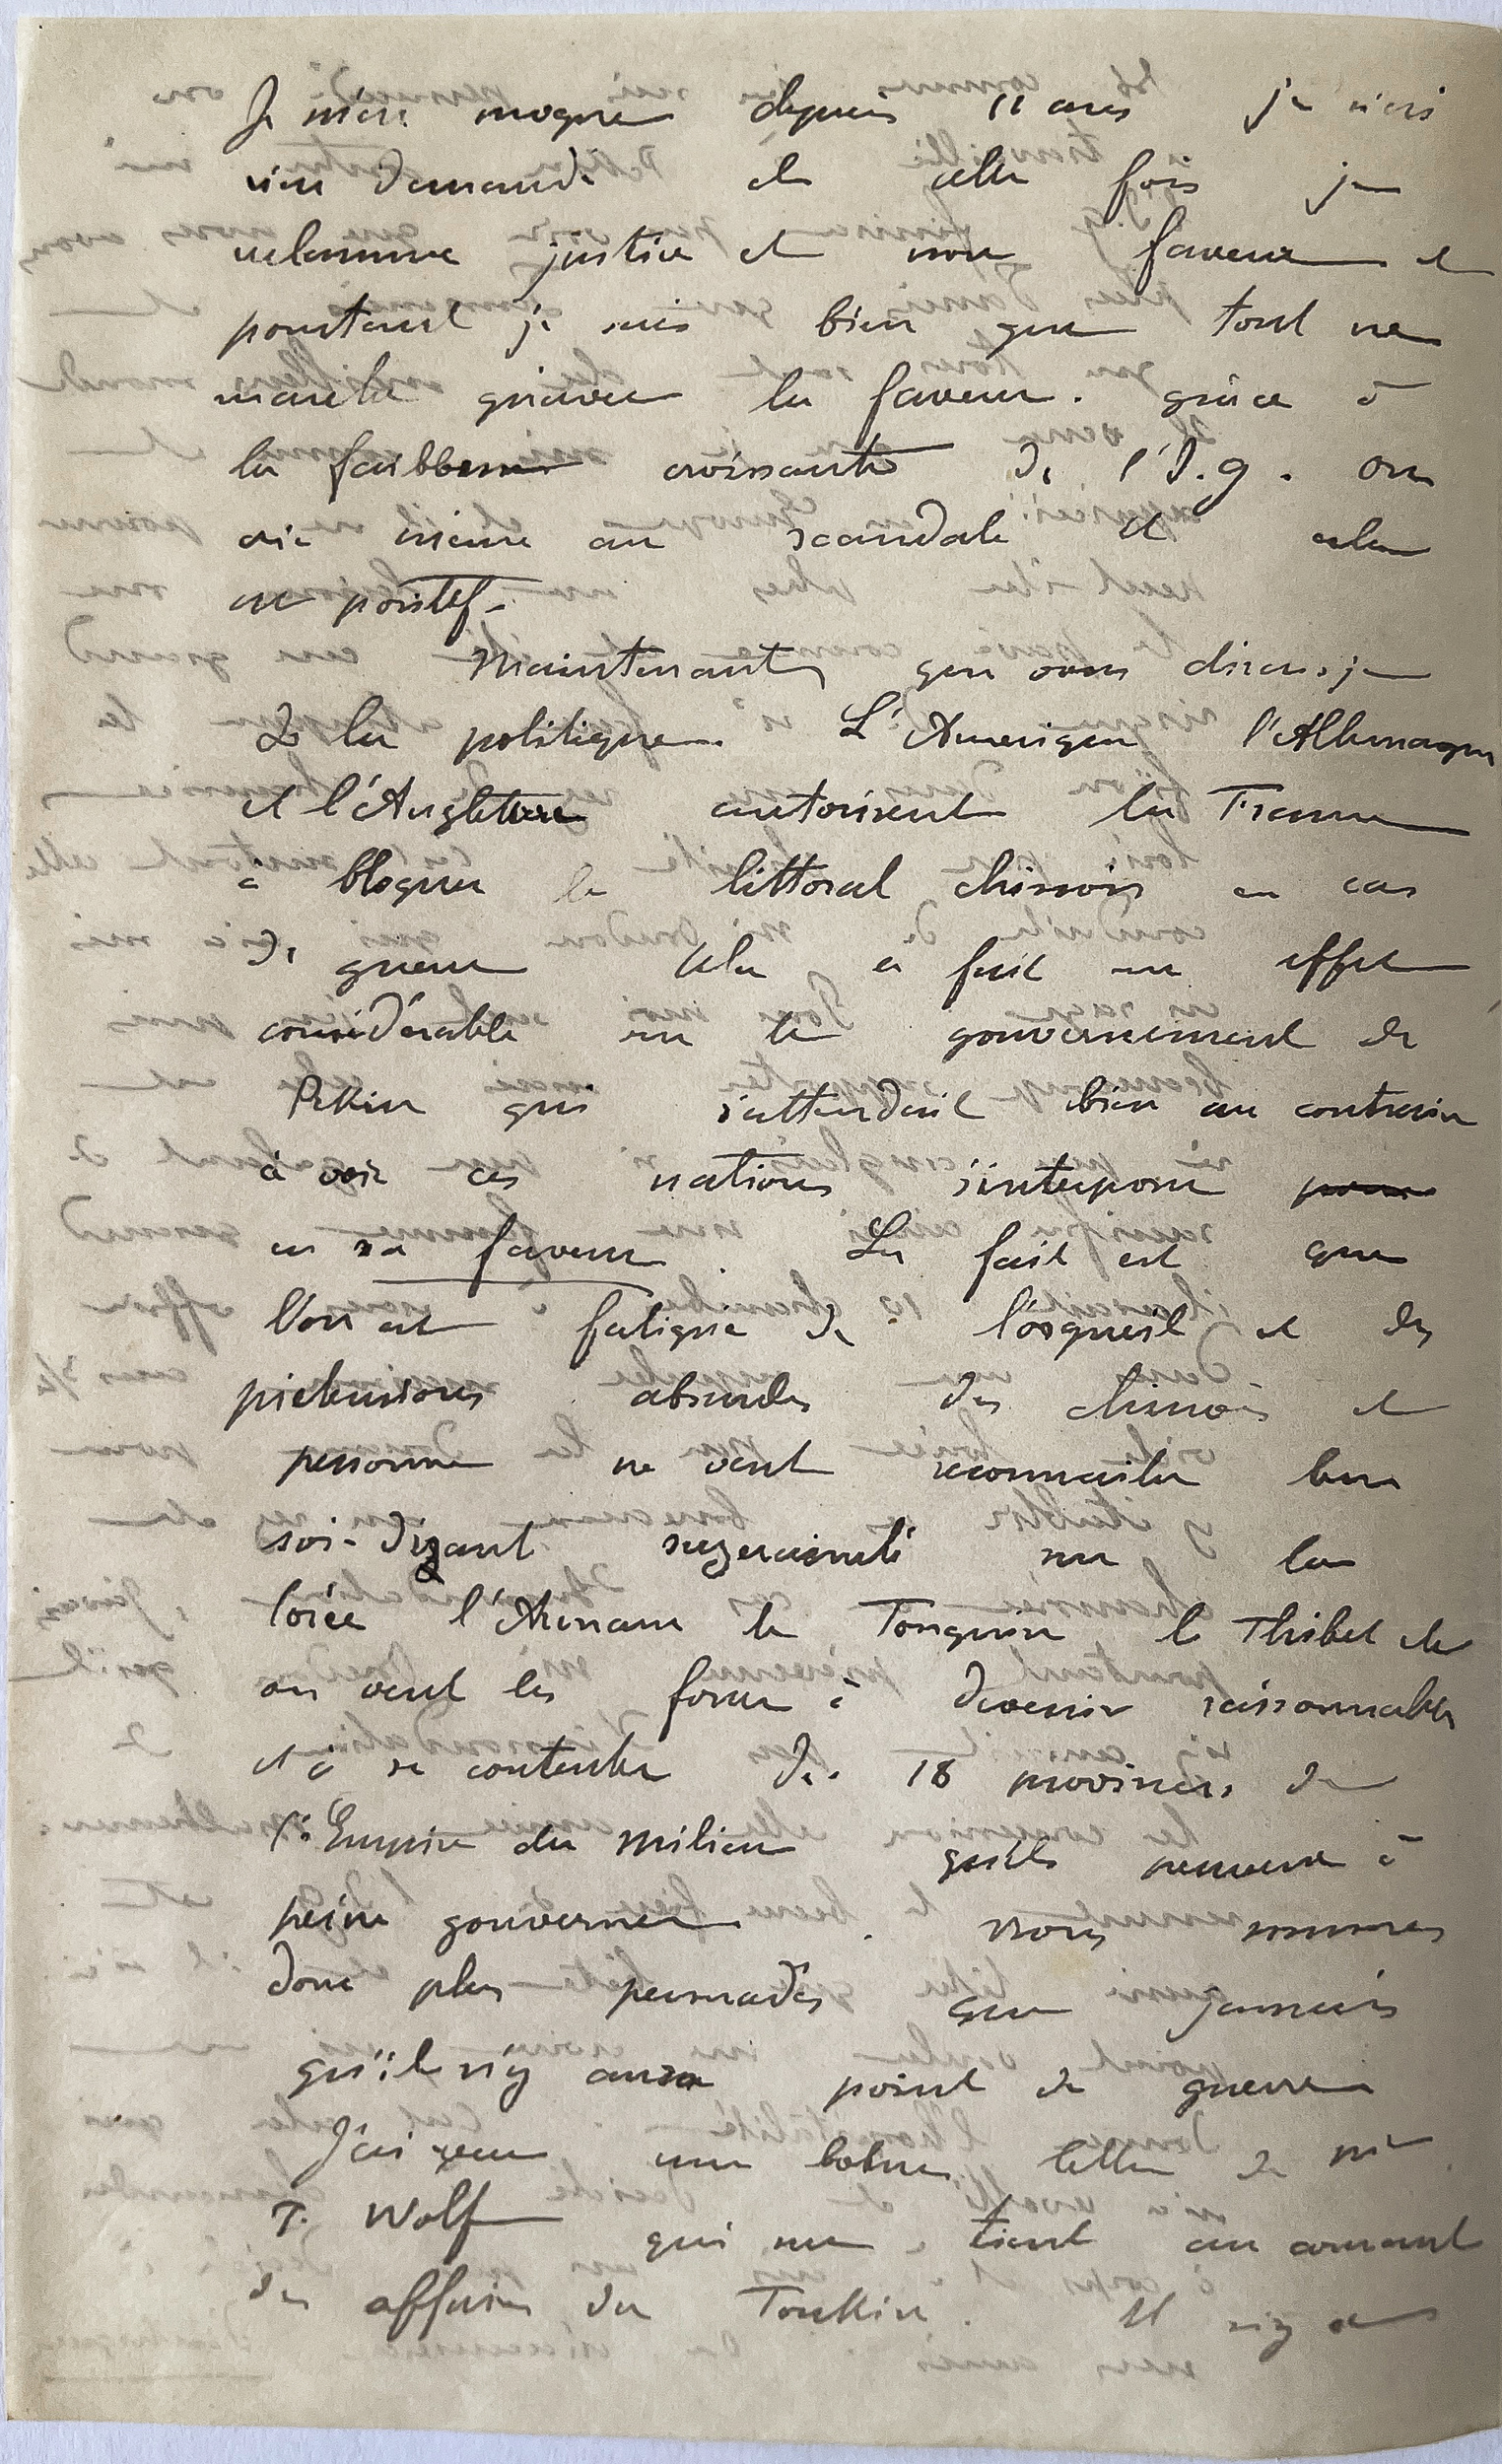 Je m'en moque depuis 11 ans je n'ai
rien demandé et cette fois je
réclame justice et non faveur et
pourtant je sais bien que tout ne
marche qu'avec la faveur. grâce à
la faiblesse croissante de l'I.g. on
crie même au scandale et cela
est positif.
Maintenant que vous dirai-je
De la politique. L'Amerique l'Allemagne
et l'Angleterre autorisent la France
à bloquer le littoral chinois en cas
De guerre Cela a fait un effet
considérable sur le gouvernement de
Pekin qui s'attendait bien au contraire
à voir ces nations s'interposer pour
en sa faveur. Le fait est que
l'on est fatigué de l'orgueil et des
prétensions absurdes des chinois et
personne ne veut reconnaitre leur
soi-dizant suzeraineté sur la
Corée l'Annam le Tonquin le Thibet etc
on veut les forcer à devenir raisonnables
et à se contenter des 18 provinces de
l'Empire du Milieu qu'ils peuvent à
peine gouverner. Nous sommes
donc plus persuadés que jamais
qu'il n'y aura point de guerre
J'ai reçu une bonne lettre de Mr
T. Wolf qui me tient au courant
des affaires du Tonkin. Il n'y a